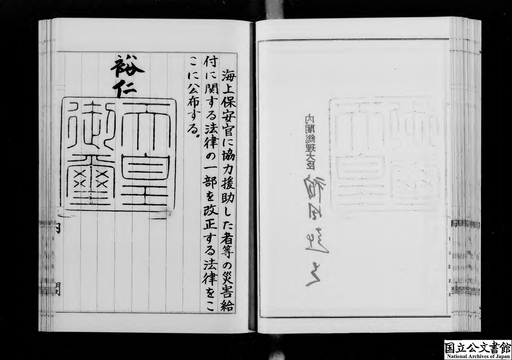 海上保安官に協力援助した者等の災害給
付に関する法律の一部を改正する法律をこ
こに公布する。
裕仁
天皇
御璽
内閣
内閣総理大臣
国立公文書館
National Archives of Japan